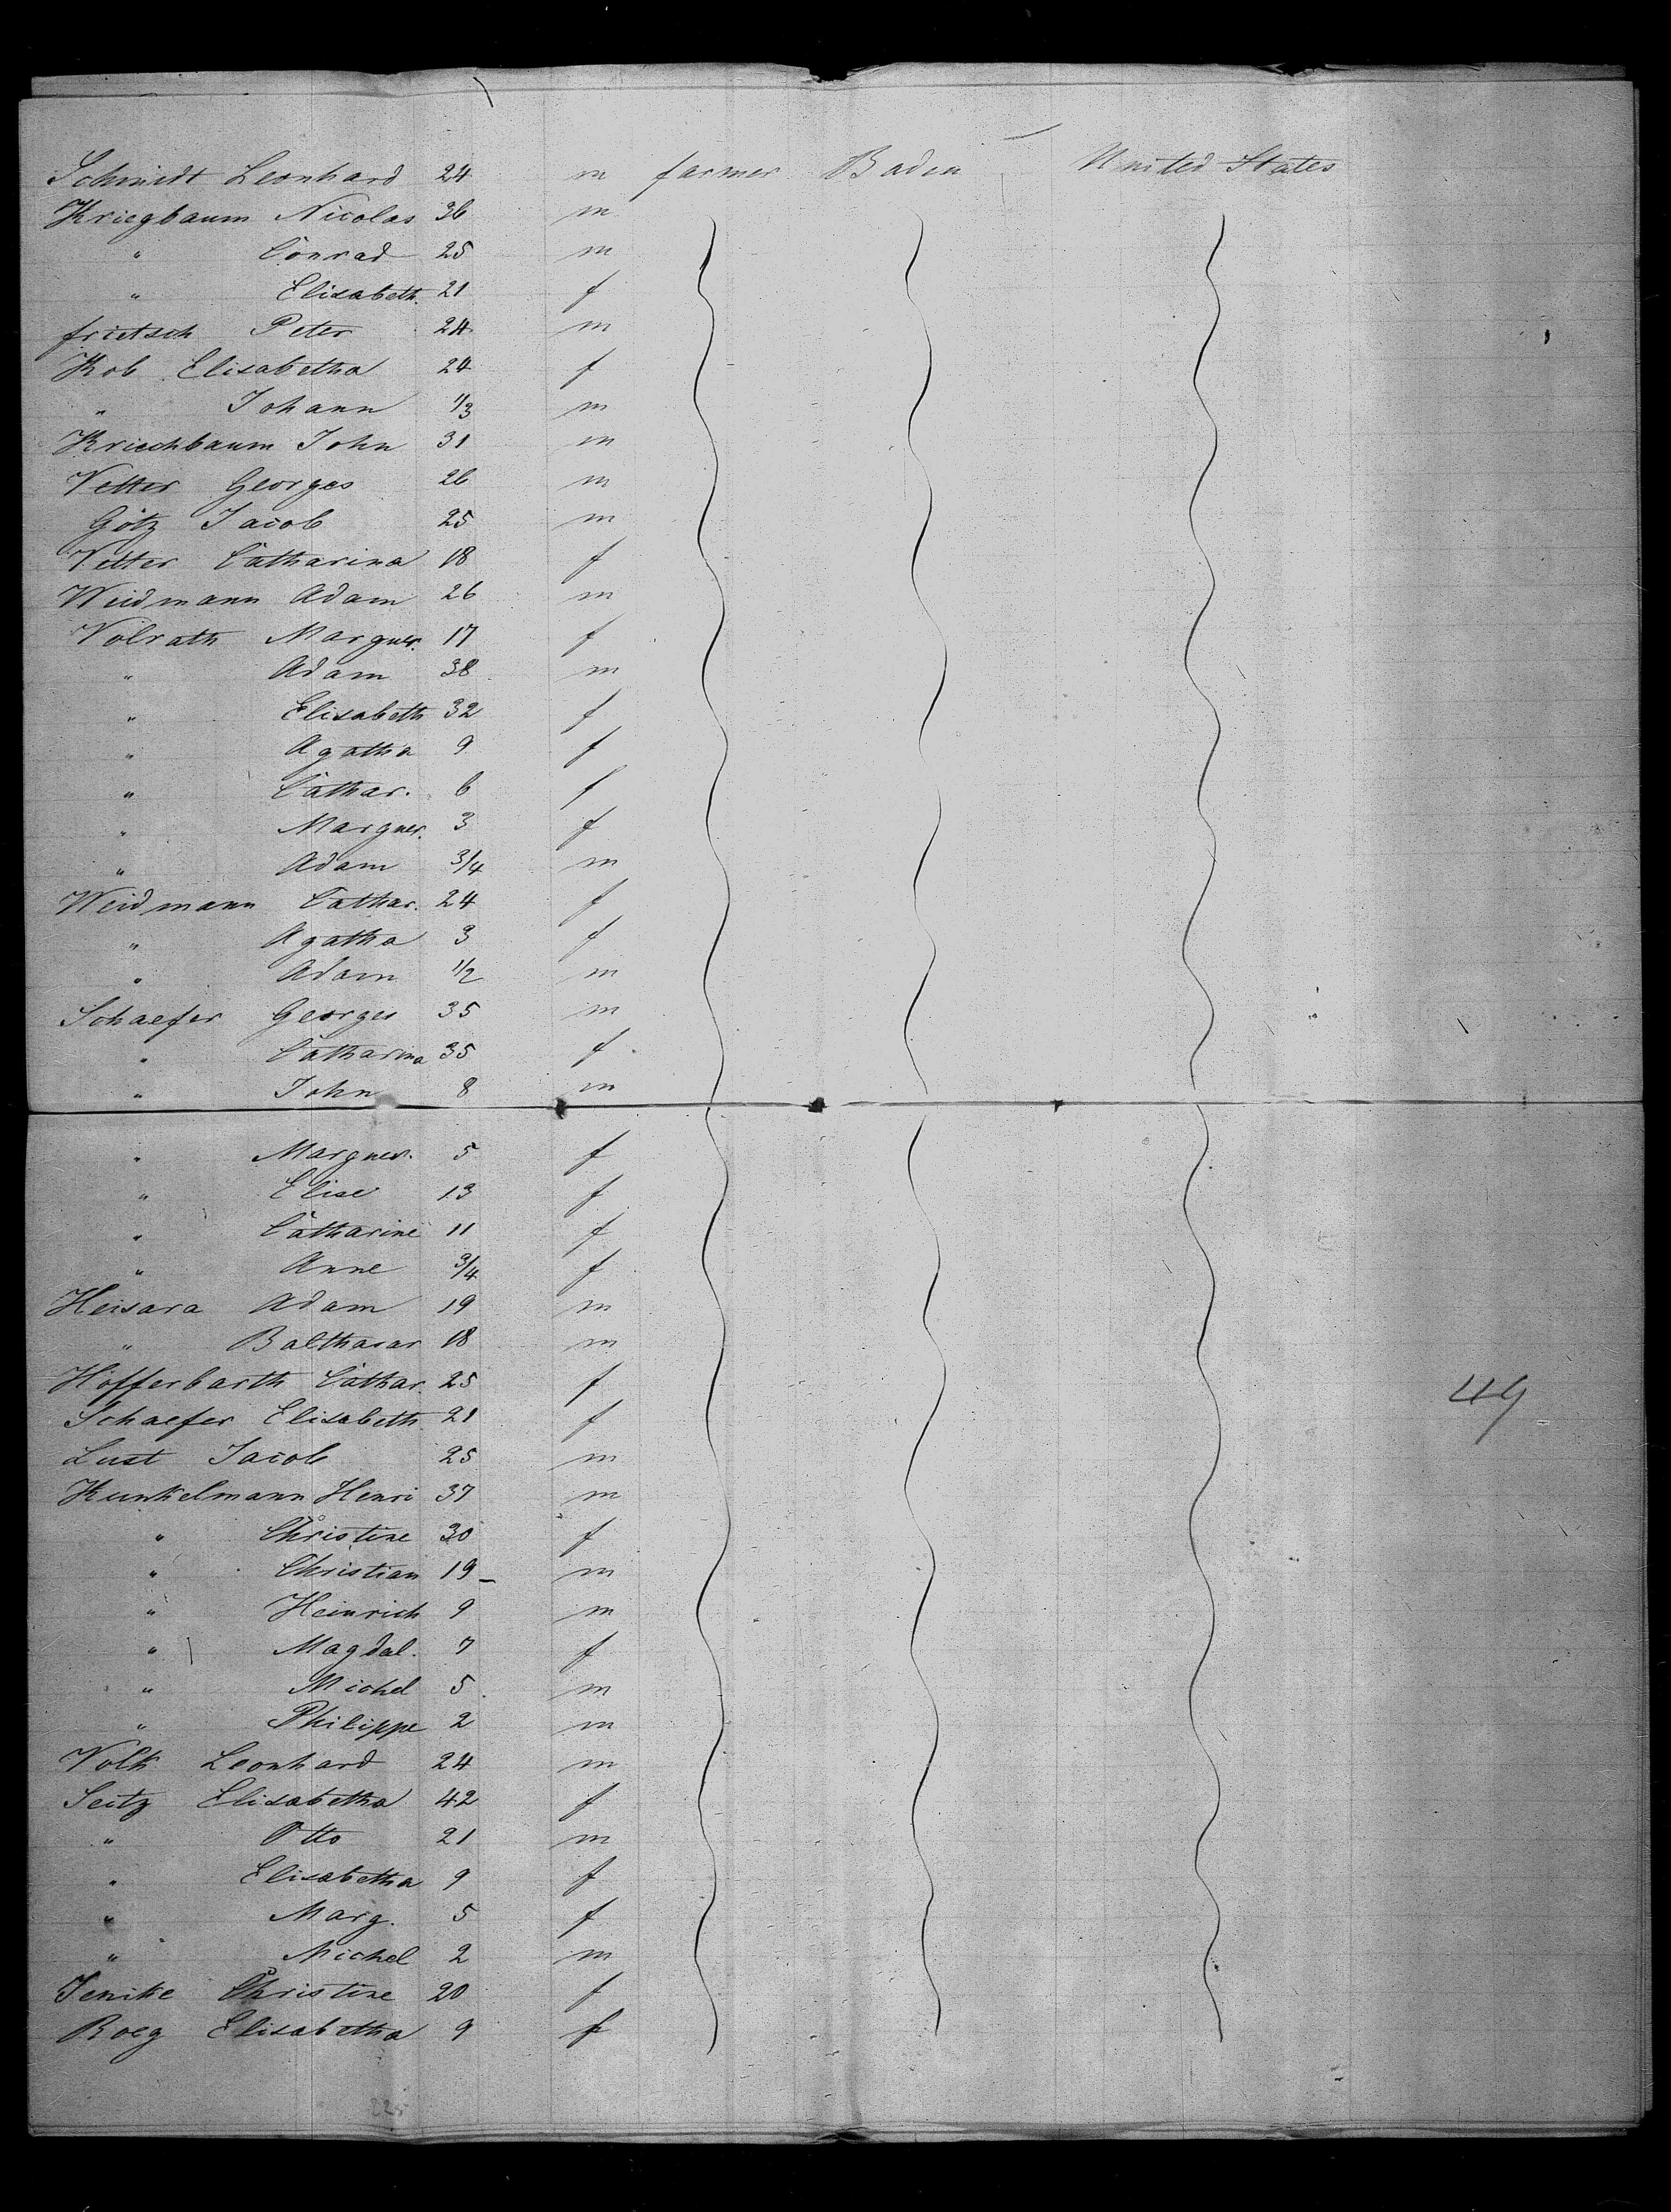 Schmidt Leonhard 24 m farmer Baden United States
Kriegbaum Nicolas 36 m
" Conrad 25 m
" Elisabeth. 21 f
frietsch Peter 24 m
Kob Elisabetha 24 f
" Johann 1/3 m
Kriechbaum John 31 m
Vetter Georges 26 m
Götz Jacob 25 m
Vetter Catharina 18 f
Weidmann Adam 26 m
Volrath Marguer. 17 f
" Adam 38 m
" Elisabeth 32 f
" Agatha 9 f
" Cathar. 6 f
" Marguer. 3 f
" Adam 3/4 m
Weidmann Cathar. 24 f
" Agatha 3 f
" Adam 1/2 m
Schaefer Georges 35 m
" Catharina 35 f
" John 8 m
" Marguer. 5 f
" Elise 13 f
" Catharine 11 f
" Anne 3/4 f
Heisara Adam 19 m
" Balthasar 18 m
Hofferbarth Cathar. 25 f
Schaefer Elisabeth 21 f
49
Lust Jacob 25 m
Kunkelmann Henri 37 m
" Christine 30 f
" Christian 19 m
" Heinrich 9 m
" Magdal. 7 f
" Michel 5 m
" Philippe 2 m
Volk Leonhard 24 m
Seitz Elisabetha 42 f
" Otto 21 m
" Elisabetha 9 f
" Marg. 5 f
" Michel 2 m
Jenike Christine 20 f
Roeg Elisabetha 9 f
225